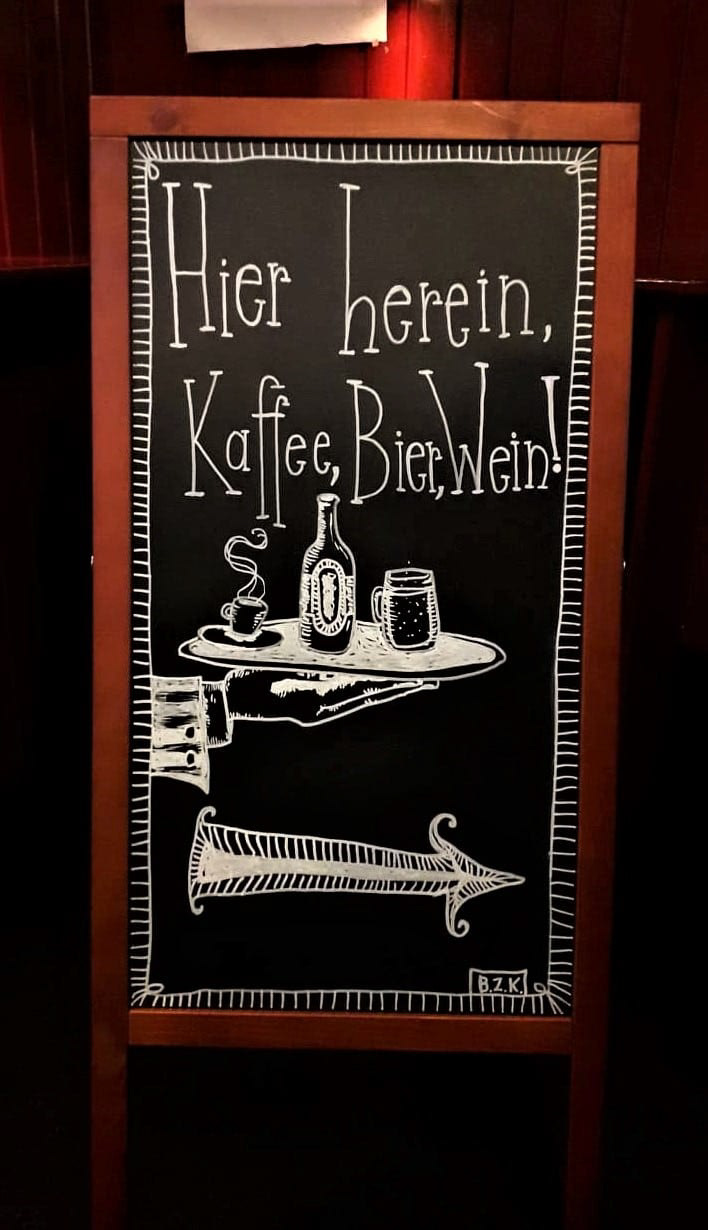 Hier herein,
Kaffee, Bier, Wein!
B.Z.K.